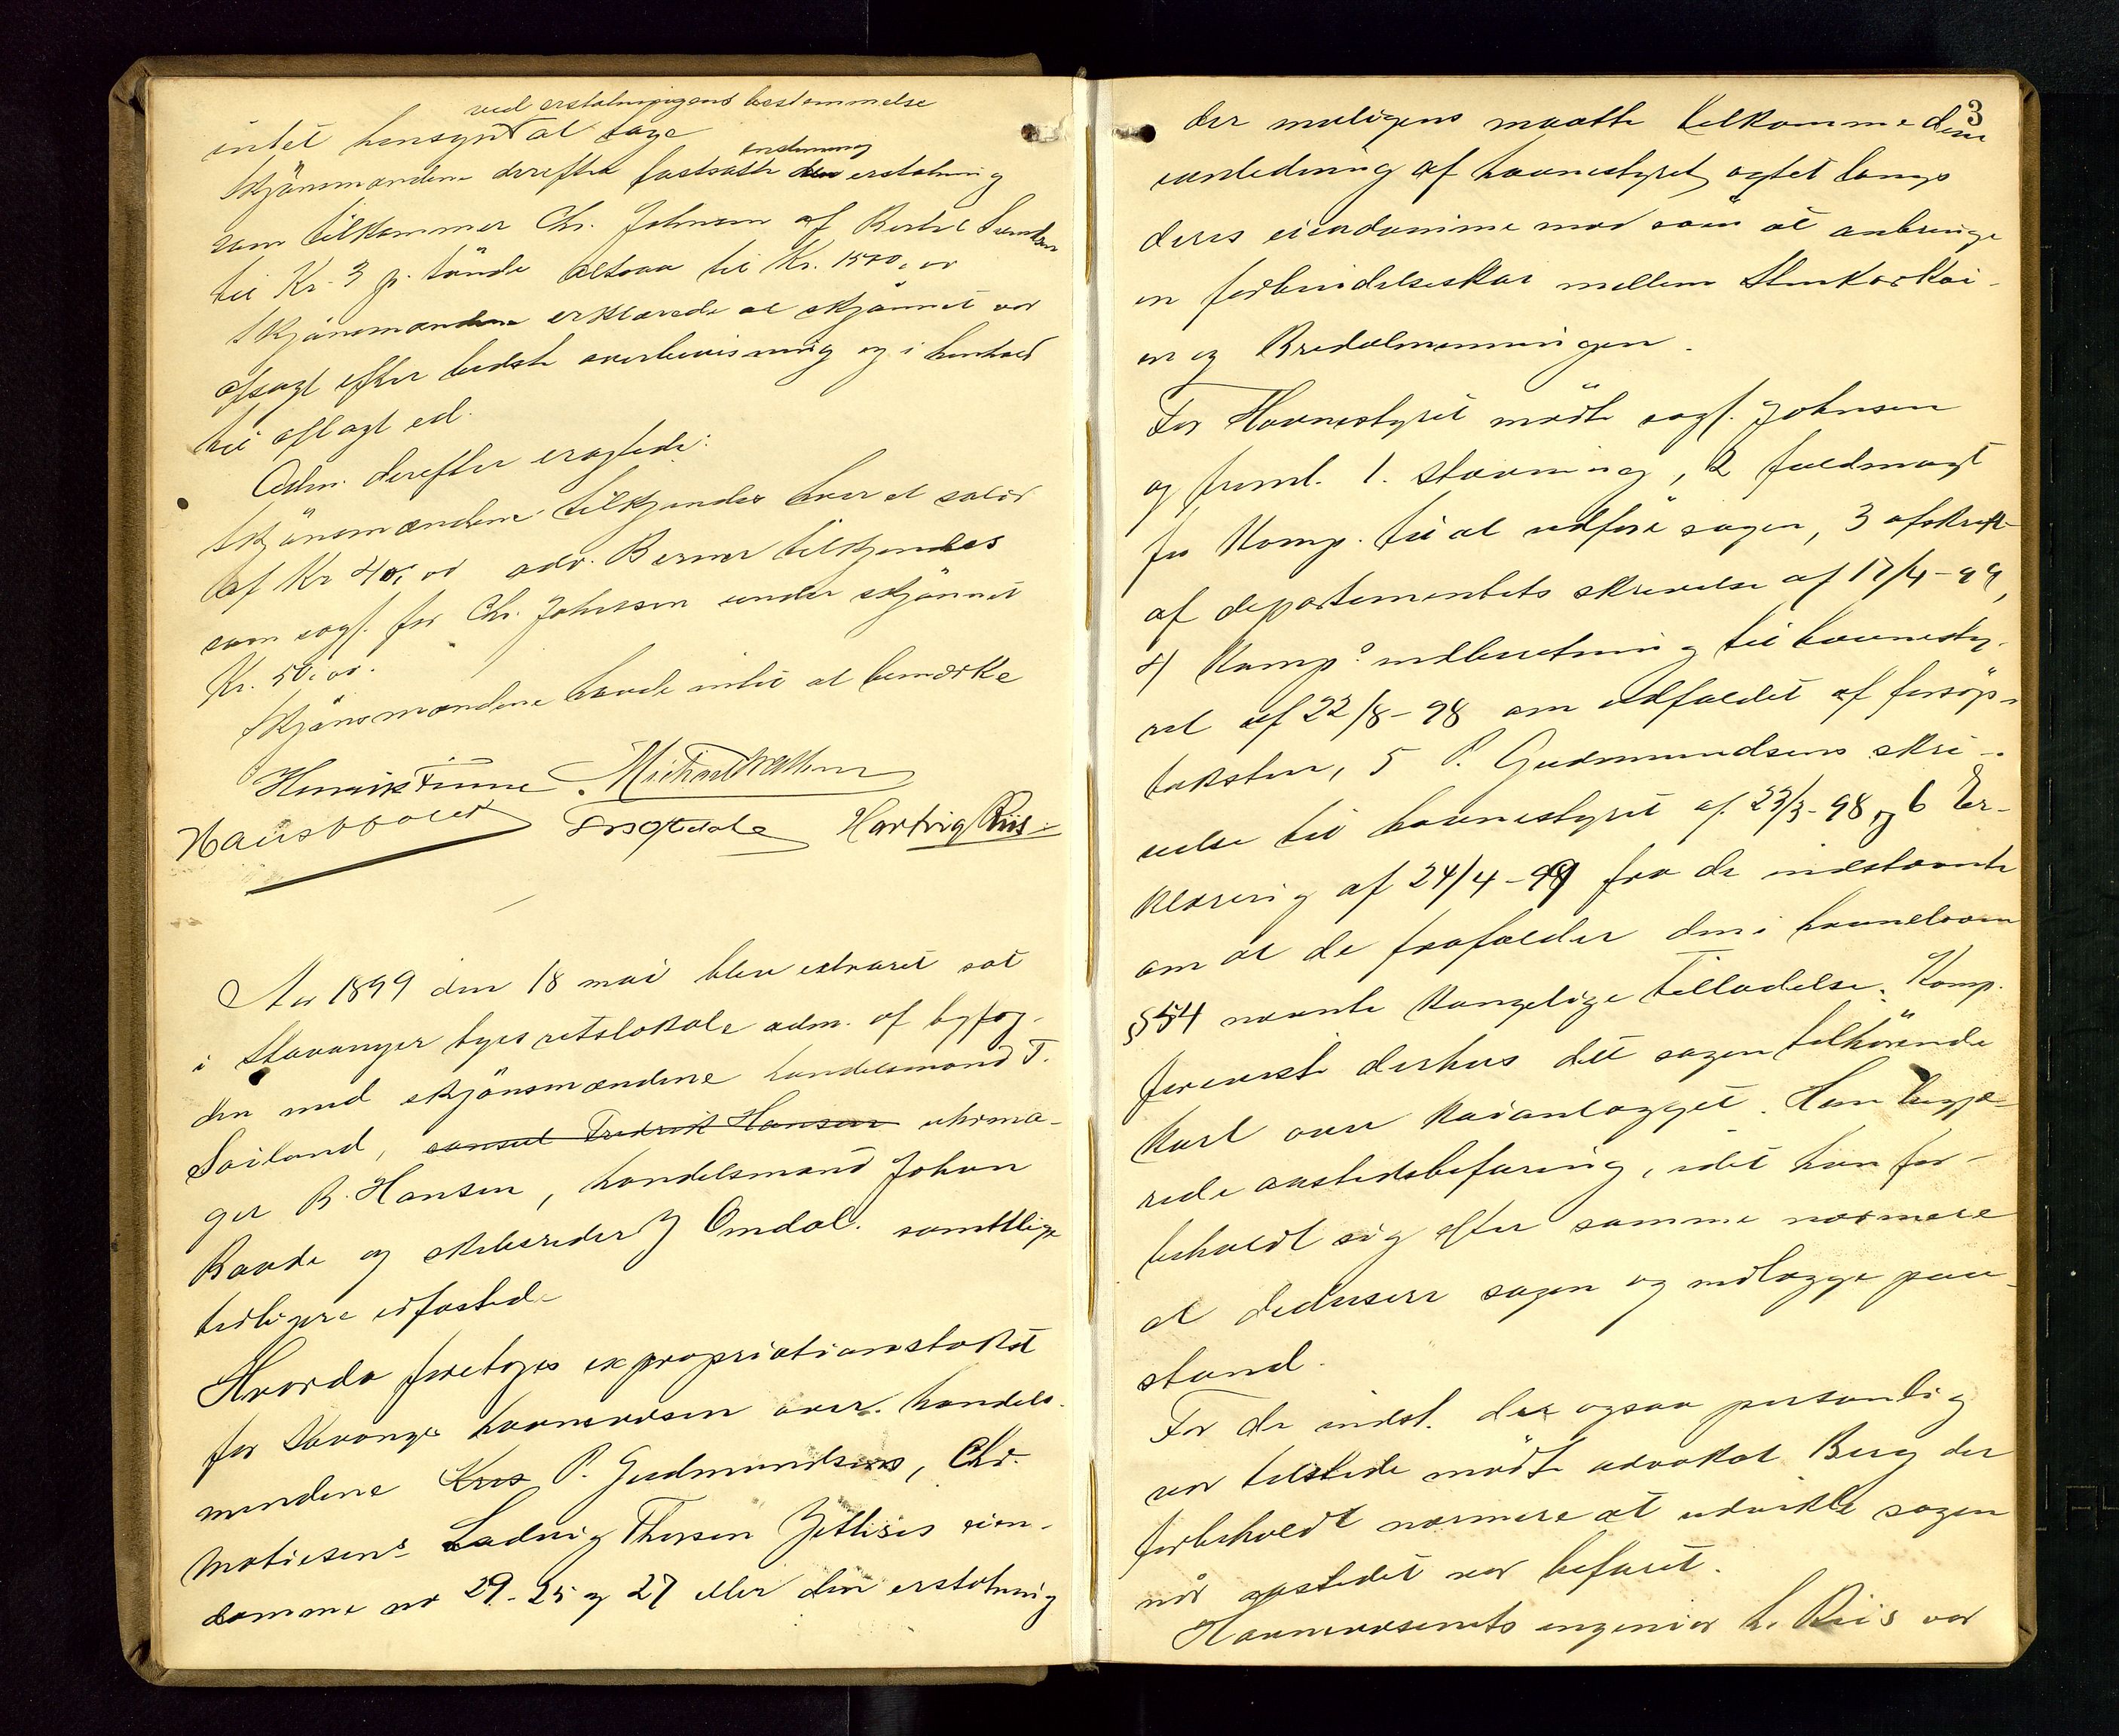 ved erstatningens bestemmelse
intet hensyn at tage
Skjönsmændene derefter fastsatte erstatning
som tilkommer Chr. Johnsen af Bertel
til Kr. 3 pr. tönde altsaa til Kr. 1500,00
Skjönsmændene erklærede at skjönnet var
afsagt efter bedste overbevisning og i henhold
til aflagt ed.
Adm. derefter eragtede:
Skjönsmændene tilkjendes hver et salær
af Kr adv. Berner tilkjendes
som sagf. for Chr. Johnsen under skjönnet
Kr. 50,00.
Skjönsmændene havde intet at bemærke
Henrik Finne
Hartvig Riis
Aar 1899 den 18 mai blev extraret sat
i Stavanger byes retslokale adm. af byfog-
den med skjönsmændene handelsmand T.
Soiland, consul Fredrik Hansen uhrma-
ger B. Hansen, handelsmand Johan
Raade og skibsreder J Omdal. samtlige
tidligere edfæstede
Hvorda foretoges expropriationstakst
for Stavanger havnevæsen over handels-
mændene P. Gudmundsens, Chr.
Matiesens Ludvig Thorsen eien-
domme no 29-25 og 27 eller den erstatning
3
der muligens maatte tilkomme dem
i anledning af havnestyrets agtet langs
deres eiendomme mod söen at anbringe
en forbindelseskai mellem Stenkarkai-
en og Bredalmenningen.
For Havnestyret mödte sagf. Johnsen
og freml. 1. stævning, 2 fuldmagt
for Komp. til at udföre sagen, 3 afskrift
af departementets skrivelse af 17/4-99,
4 Komp.s indberetning til havnesty-
ret af 22/8-98 om udfaldet af forsögs-
taksten, 5 P. Gudmundsens skri-
velse til havnestyret af 23/3-98 og 6 Er-
klæring af 24/4-99 fra de indstævnte
om at de frafalder den i havneloven
§54 nævnte kongelige tilladelse. Komp.
foreviste derhos det sagen tilhörende
kart over kaianlægget. Han begjæ-
rede aastedsbefaring, idet han for-
beholdt sig efter samme nærmere
at deducere sagen og nedlægge paa-
stand.
For de indst. der ogsaa personlig
var tilstede mödte advokat Berg der
forbeholdt nærmere at udvikle sagen
når aastedet var befaret.
Havnevæsenets ingeniör h. Riis var